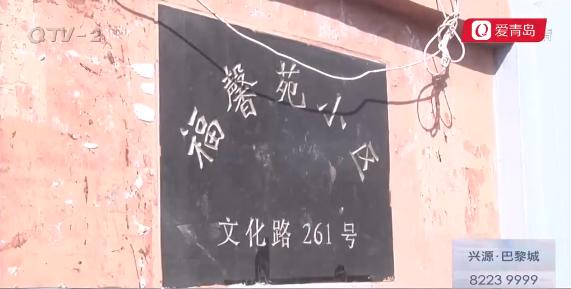 QTV-2
爱青岛
福馨苑小区
文化路 261 号
兴源·巴黎城
8223 9999